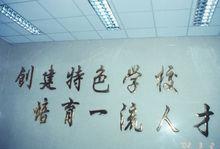 创建特色学校
培育一流人才